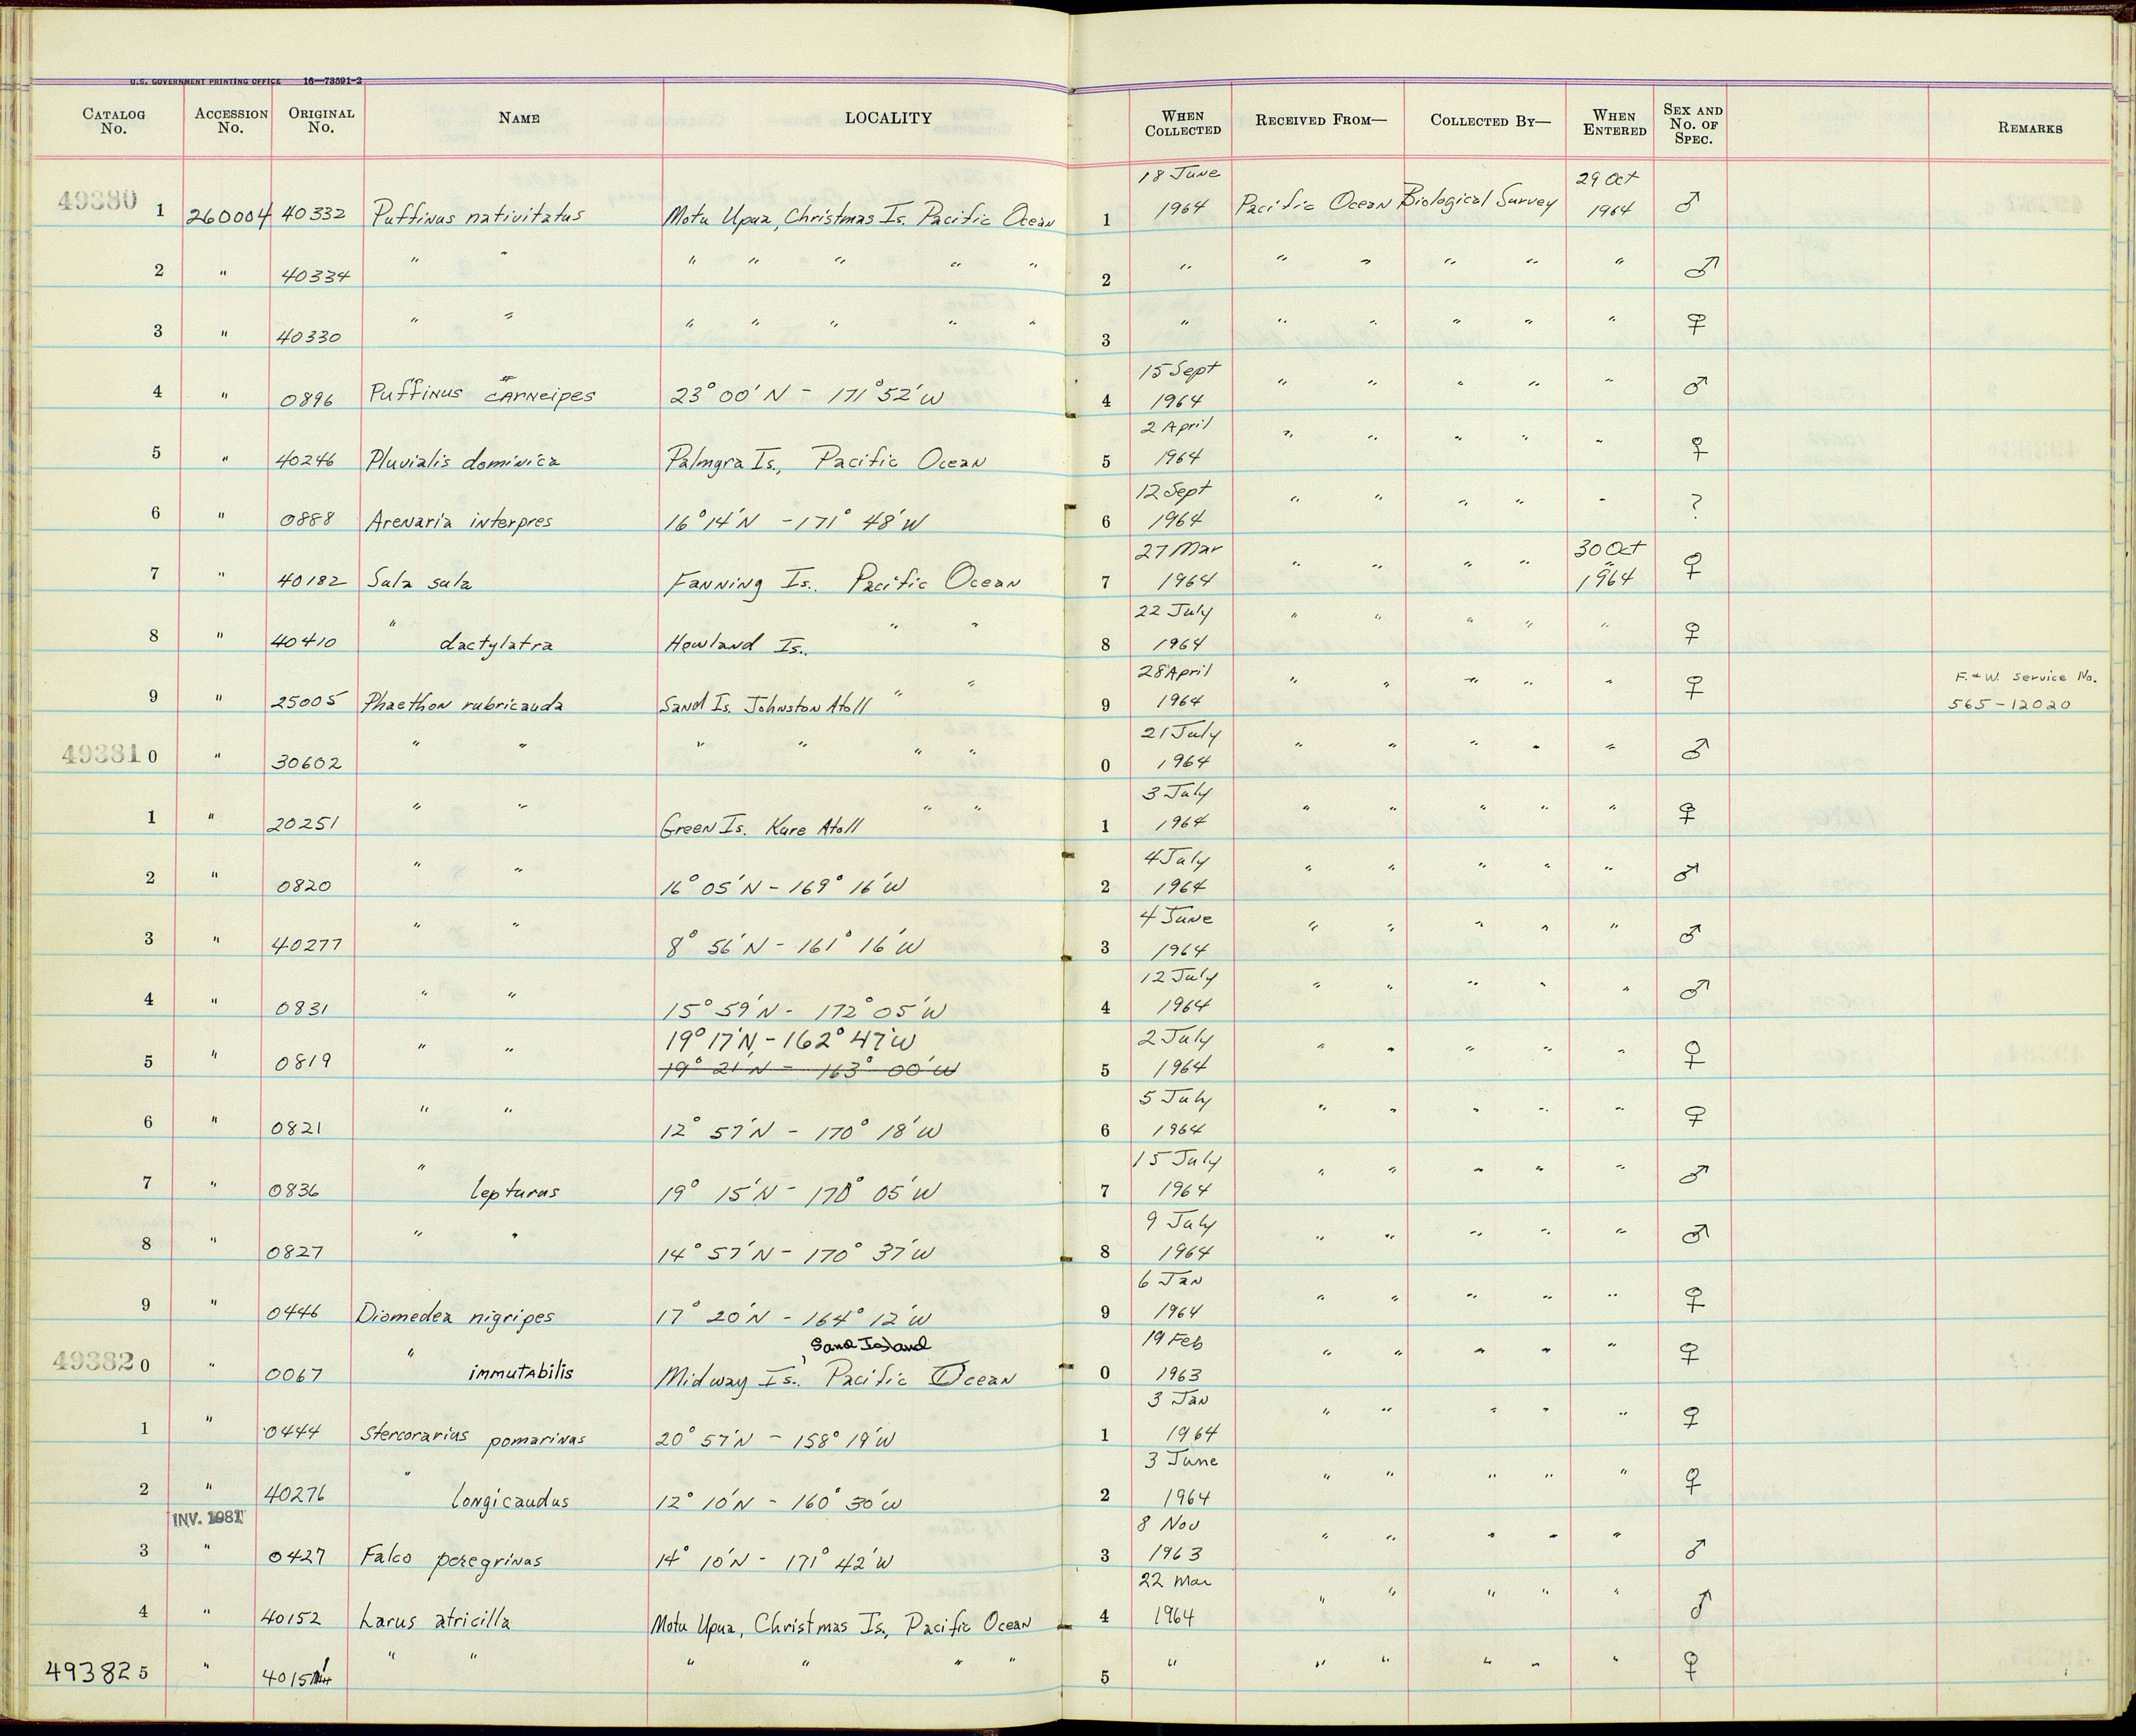 U.S. GOVERNMENT PRINTING OFFICE 16—73591-2
CATALOG No. ACCESSION No. ORIGINAL No. NAME LOCALITY WHEN COLLECTED RECEIVED FROM— COLLECTED BY— WHEN ENTERED SEX AND No. OF SPEC. REMARKS
49380 1 260004 40332 Puffinus nativitatus Motu Upua, Christmas Is. Pacific Ocean 1 18 June 1964 Pacific Ocean Biological Survey 29 Oct 1964 ♂
2 " 40334 " " " " " " " 2 " " " " " " ♂
3 " 40330 " " " " " " " 3 " " " " " " ♀
4 " 0896 Puffinus carneipes 23° 00' N - 171° 52' W 4 15 Sept 1964 " " " " " ♂
5 " 40246 Pluvialis dominica Palmyra Is., Pacific Ocean 5 2 April 1964 " " " " " ♀
6 " 0888 Arenaria interpres 16° 14' N - 171° 48' W 6 12 Sept 1964 " " " " " ?
7 " 40182 Sula sula Fanning Is.. Pacific Ocean 7 27 Mar 1964 " " " " 30 Oct 1964 ♀
8 " 40410 " dactylatra Howland Is.. " " 8 22 July 1964 " " " " " ♀
9 " 25005 Phaethon rubricauda Sand Is. Johnston Atoll " " 9 28 April 1964 " " " " " ♀ F. & W. Service No. 565-12020
49381 0 " 30602 " " " " " " 0 21 July 1964 " " " " " ♂
1 " 20251 " " Green Is. Kure Atoll " " 1 3 July 1964 " " " " " ♀
2 " 0820 " " 16° 05' N - 169° 16' W 2 4 July 1964 " " " " " ♂
3 " 40277 " " 8° 56' N - 161° 16' W 3 4 June 1964 " " " " " ♂
4 " 0831 " " 15° 59' N - 172° 05' W 4 12 July 1964 " " " " " ♂
19° 17' N, - 162° 47' W
5 " 0819 " " 19° 21' N - 163° 00' W 5 2 July 1964 " " " " " ♀
6 " 0821 " " 12° 57' N - 170° 18' W 6 5 July 1964 " " " " " ♀
7 " 0836 " lepturus 19° 15' N - 170° 05' W 7 15 July 1964 " " " " " ♂
8 " 0827 " " 14° 57' N - 170° 37' W 8 9 July 1964 " " " " " ♂
9 " 0446 Diomedea nigripes 17° 20' N - 164° 12' W 9 6 Jan 1964 " " " " " ♀
Sand Island
49382 0 " 0067 " immutabilis Midway Is., Pacific Ocean 0 19 Feb 1963 " " " " " ♀
1 " 0444 Stercorarius pomarinus 20° 57' N - 158° 19' W 1 3 Jan 1964 " " " " " ♀
2 " 40276 " longicaudus 12° 10' N - 160° 30' W 2 3 June 1964 " " " " " ♀
INV. 1981
3 " 0427 Falco peregrinus 14° 10' N - 171° 42' W 3 8 Nov 1963 " " " " " ♂
4 " 40152 Larus atricilla Motu Upua, Christmas Is., Pacific Ocean 4 22 Mar 1964 " " " " " ♂
49382 5 " 40151 " " " " " " 5 " " " " " " ♀